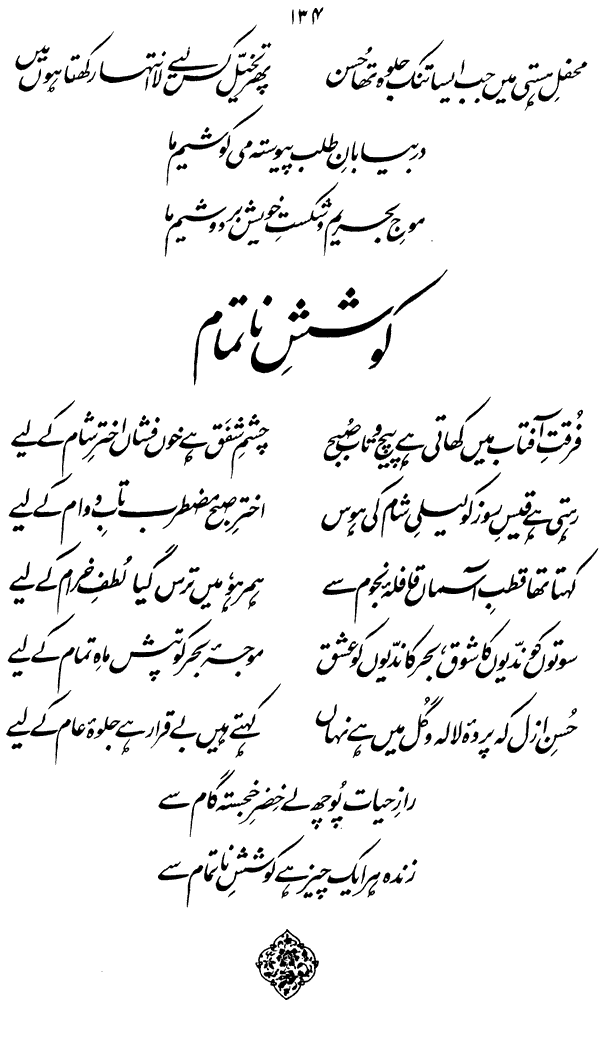 ۱۳۴
محفلِ ہستی میں جب ایسا تنک جلوہ تھا حُسن پھر تخیّل کس لیے لا انتہا رکھتا ہوں میں
در بیابانِ طلب پیوستہ می کوشیم ما
موجِ بحریم و شکستِ خویش بر دوشیم ما
کوششِ ناتمام
فُرقتِ آفتاب میں کھاتی ہے پیچ و تاب صُبح چشمِ شفَق ہے خوں فشاں اخترِ شام کے لیے
رہتی ہے قیسِ روز کو لیلیِ شام کی ہوس اخترِ صبح مضطرب تابِ دوام کے لیے
کہتا تھا قطبِ آسماں قافلۂ نجوم سے ہمرہو، میں ترس گیا لُطفِ خرام کے لیے
سوتوں کو ندّیوں کا شوق، بحر کا ندّیوں کو عشق موجۂ بحر کو تپش ماہِ تمام کے لیے
حُسنِ ازل کہ پردۂ لالہ و گُل میں ہے نہاں کہتے ہیں بے قرار ہے جلوۂ عام کے لیے
رازِ حیات پُوچھ لے خِضرِ خجستہ گام سے
زندہ ہر ایک چیز ہے کوششِ ناتمام سے